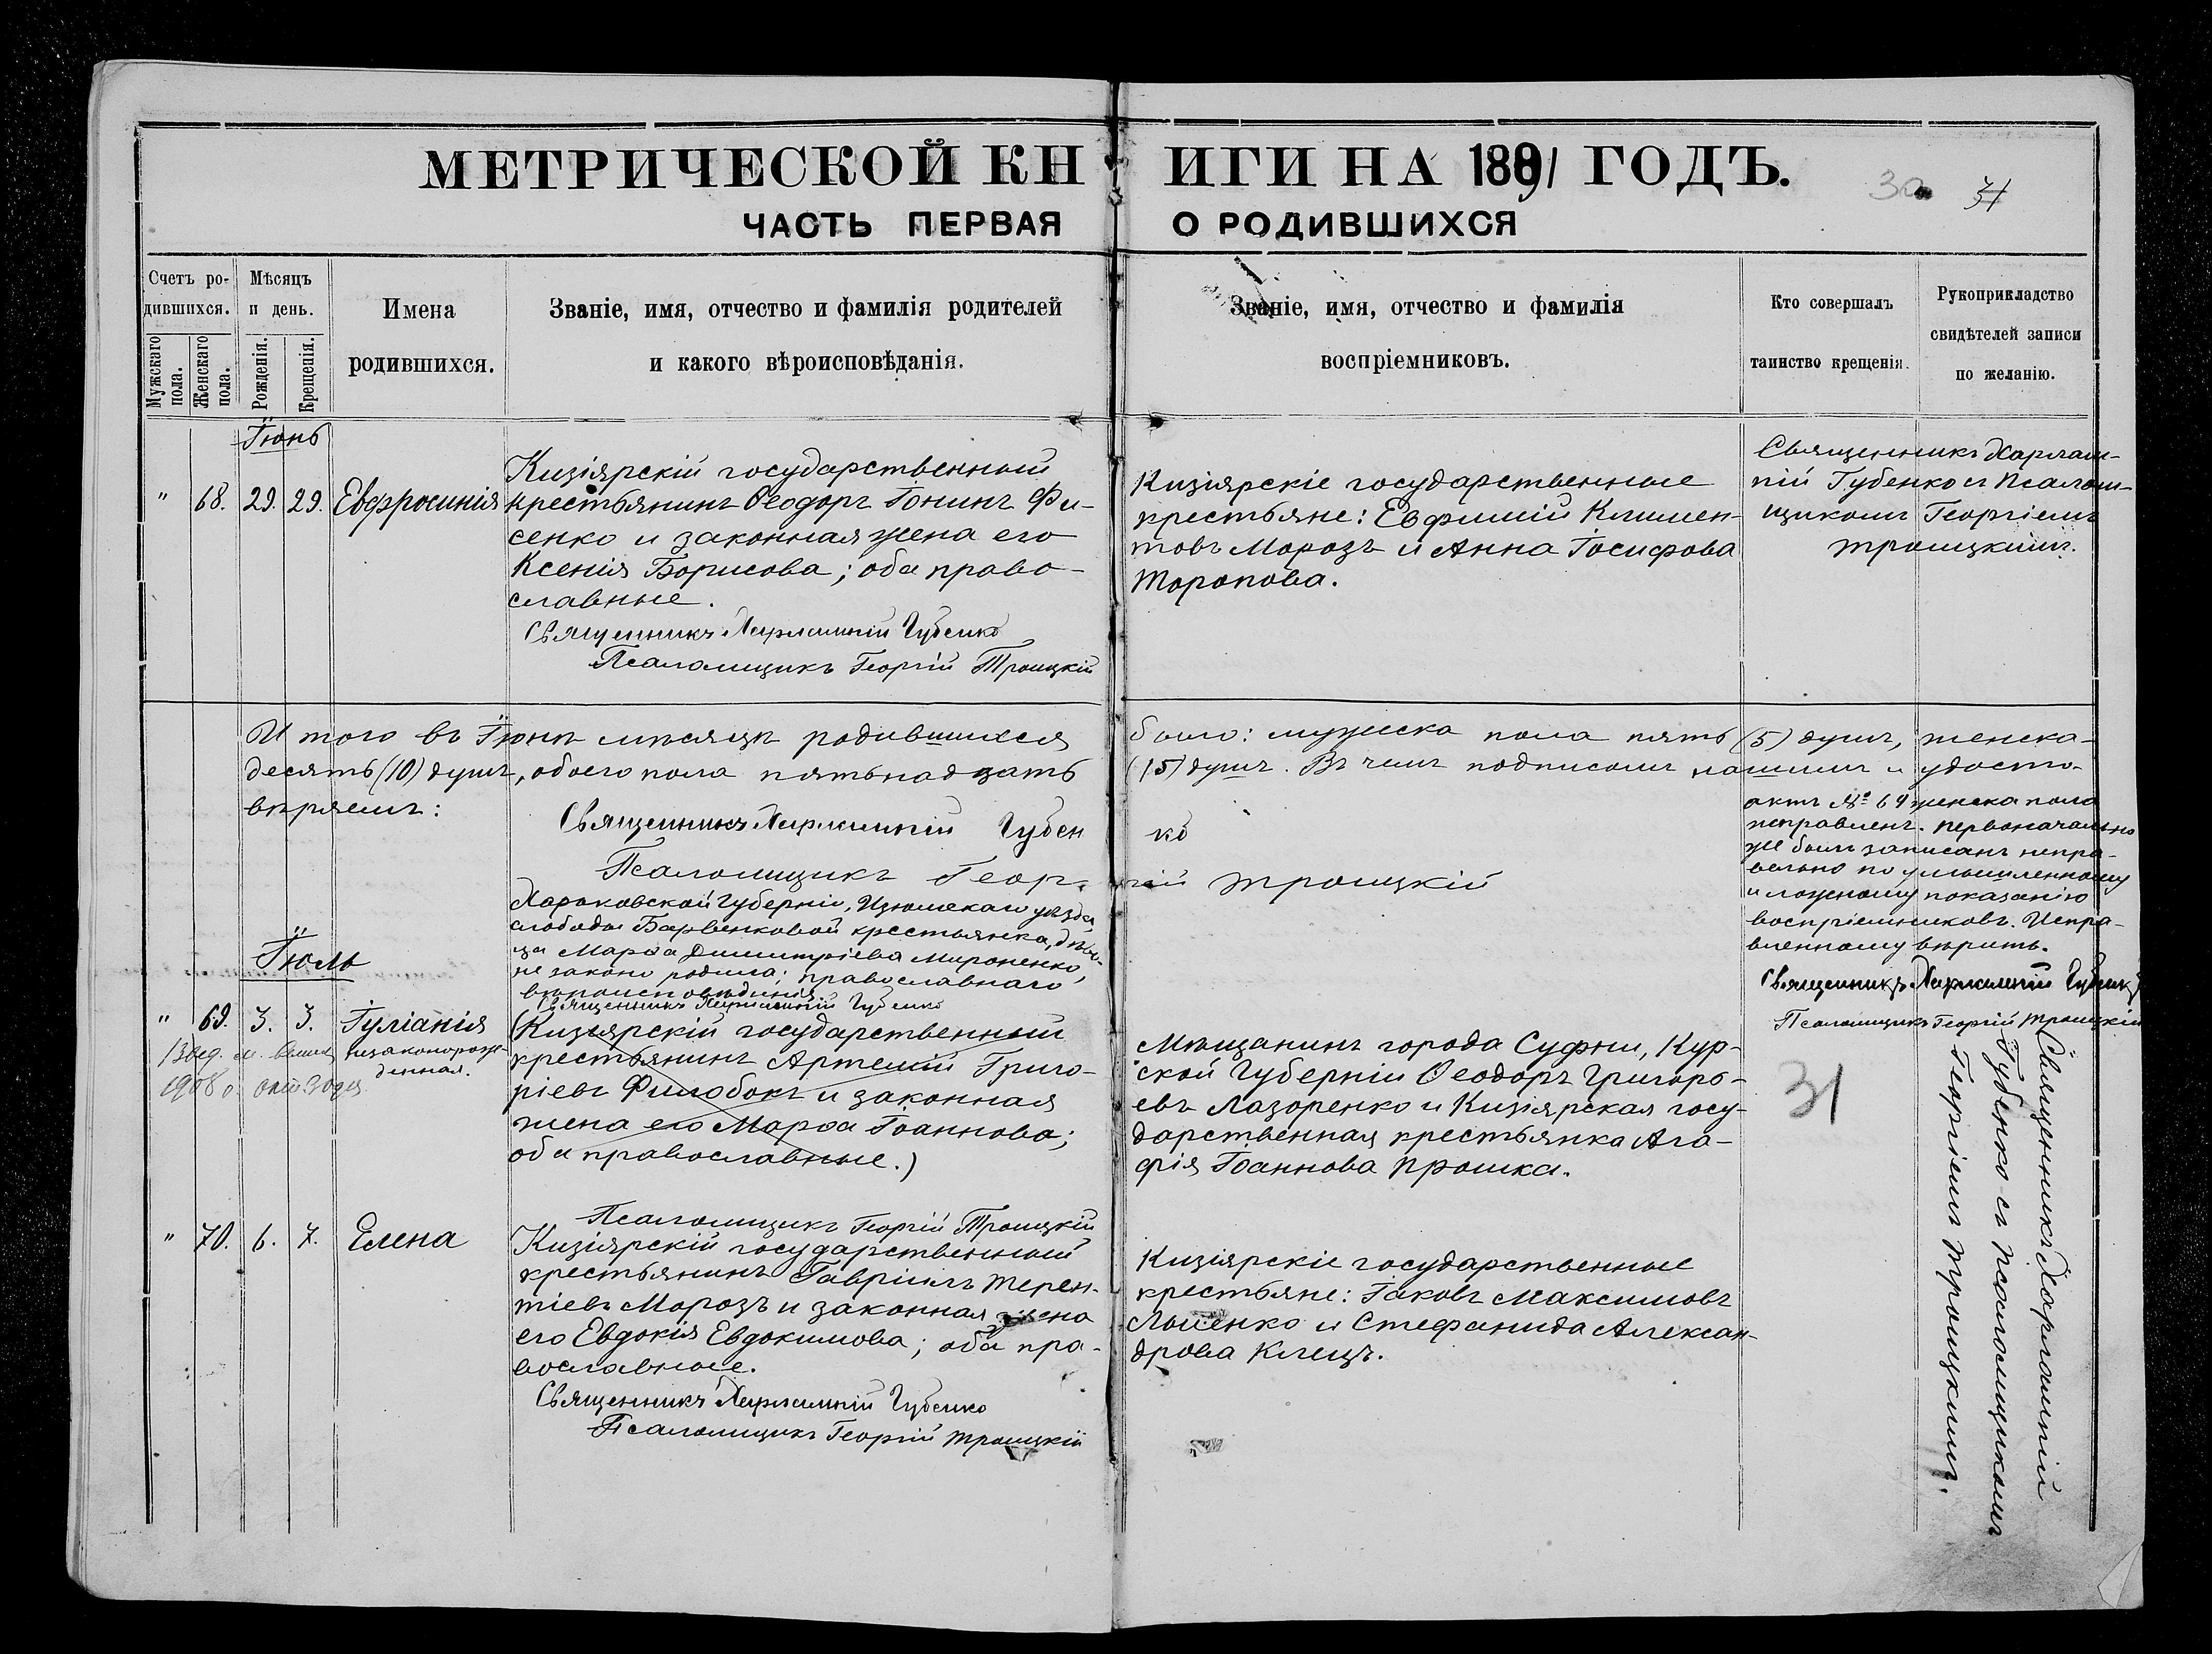 МЕТРИЧЕСКОЙ КНИГИ НА 1891 ГОДЪ.
31
ЧАСТЬ ПЕРВАЯ О РОДИВШИХСЯ
Счетъ ро-
дившихся.
Мужскаго пола.
Женскаго пола.
Мѣсяцъ
и день.
Рожденія.
Крещенія.
Имена
родившихся.
Званіе, имя, отчество и фамилія родителей
и какого вѣроисповѣданія.
Званіе, имя, отчество и фамилія
воспріемниковъ.
Кто совершалъ
таинство крещенія.
Рукоприкладство
свидѣтелей записи
по желанію.
Іюнь
" 68. 29. 29. Евфросинія
Кизіярскій государственный
крестьянинъ Ѳеодоръ Іонинъ Фи-
сенко и законная жена его
Ксенія Борисова; оба право-
славные.
Священникъ Харлампій Губенко
Псаломщикъ Георгій Троицкій
Кизіярскіе государственные
крестьяне: Евфимій Климен-
товъ Морозъ и Анна Іосифова
Торопова.
Священникъ Харлам-
пій Губенко съ Псалом-
щикомъ Георгіемъ
Троицкимъ.
Итого въ Іюнѣ мѣсяцѣ родившихся было: мужеска пола пять (5) душъ, женска-
десять (10) душъ, обоего пола пятьнадцать (15) душъ. Въ чемъ подписомъ нашимъ и удосто-
вѣряемъ:
Священникъ Харлампій Губенко
Псаломщикъ Георгій Троицкій
актъ № 69 женска пола
исправленъ. Первоначально
же былъ записанъ непра-
вильно по умышленному
и ложному показанію
воспріемниковъ. Испра-
вленному вѣрить.
Священникъ Харлампій Губенко
Псаломщикъ Георгій Троицкій
Іюль
Харьковской Губерніи, Изюмскаго уѣзда
слободы Барвенковой крестьянка, дѣви-
ца Марѳа Димитріева Мироненко,
не законо родила; православнаго
вѣроисповѣданія
Священникъ Харлампій Губенко
" 69. 3. 3. Іуліанія
незаконорож-
денная.
1908
(Кизіярскій государственный
крестьянинъ Артемій Григо-
ріевъ Филобокъ и законная
жена его Марѳа Іоаннова;
оба православные.)
Псаломщикъ Георгій Троицкій
Мѣщанинъ города Суджи, Кур-
ской Губерніи Ѳеодоръ Григорь-
евъ Лазоренко и Кизіярская госу-
дарственная крестьянка Ага-
фія Іоаннова Прошка.
31
Священникъ Харлампій
Губенко съ Псаломщикомъ
Георгіемъ Троицкимъ.
" 70. 6. 7. Елена
Кизіярскій государственный
крестьянинъ Гавріилъ Терен-
тіевъ Морозъ и законная жена
его Евдокія Евдокимова; оба пра-
вославные.
Священникъ Харлампій Губенко
Псаломщикъ Георгій Троицкій
Кизіярскіе государственные
крестьяне: Іаковъ Максимовъ
Лысенко и Стефанида Алексан-
дрова Клещъ.